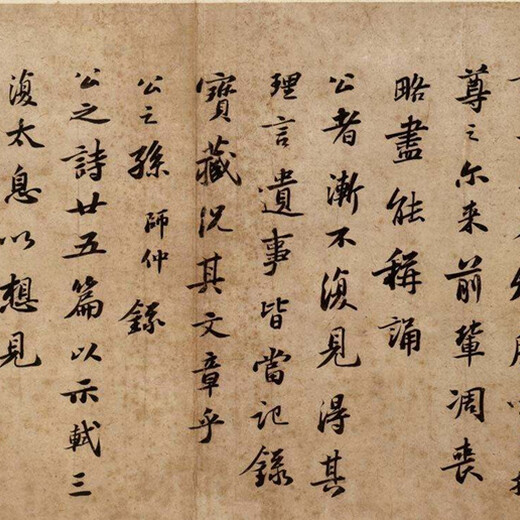 尊之尔来前輩凋喪
略盡能稱誦
公者漸不復見得其
理言遺事皆當記錄
寶藏況其文章乎
公之孫師仲錄
公之詩廿五篇以示軾三
復太息以想見